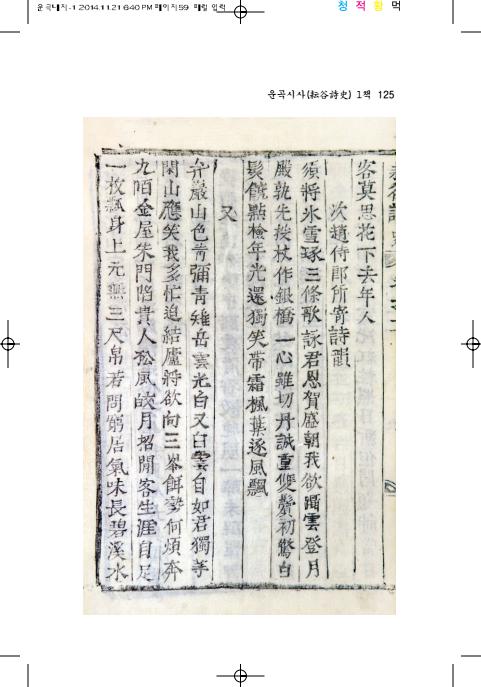 운곡대지-1 2014.11.21 6:40 PM 페이지 59 매일 입력
청 적 황 먹
운곡시사(耘谷詩史) 1책 125
客莫思花下去年人
次趙侍郎所寄詩韻
須將氷雪琢三條歌詠君恩賀盛朝我欲躡雲登月
殿孰先投杖作銀橋一心雖切丹誠重雙鬢初驚白
髮饒點檢年光還獨笑帶霜楓葉逐風飄
又
弁巖山色靑彌青雉岳雲光白又白雲自如君獨等
閑山應笑我多忙迫結廬將欲向三峯餌勢何煩奔
九陌金屋朱門陷貴人松風皎月招閒客生涯自足
一枚瓢身上元無三尺帛若問窮居氣味長碧溪水